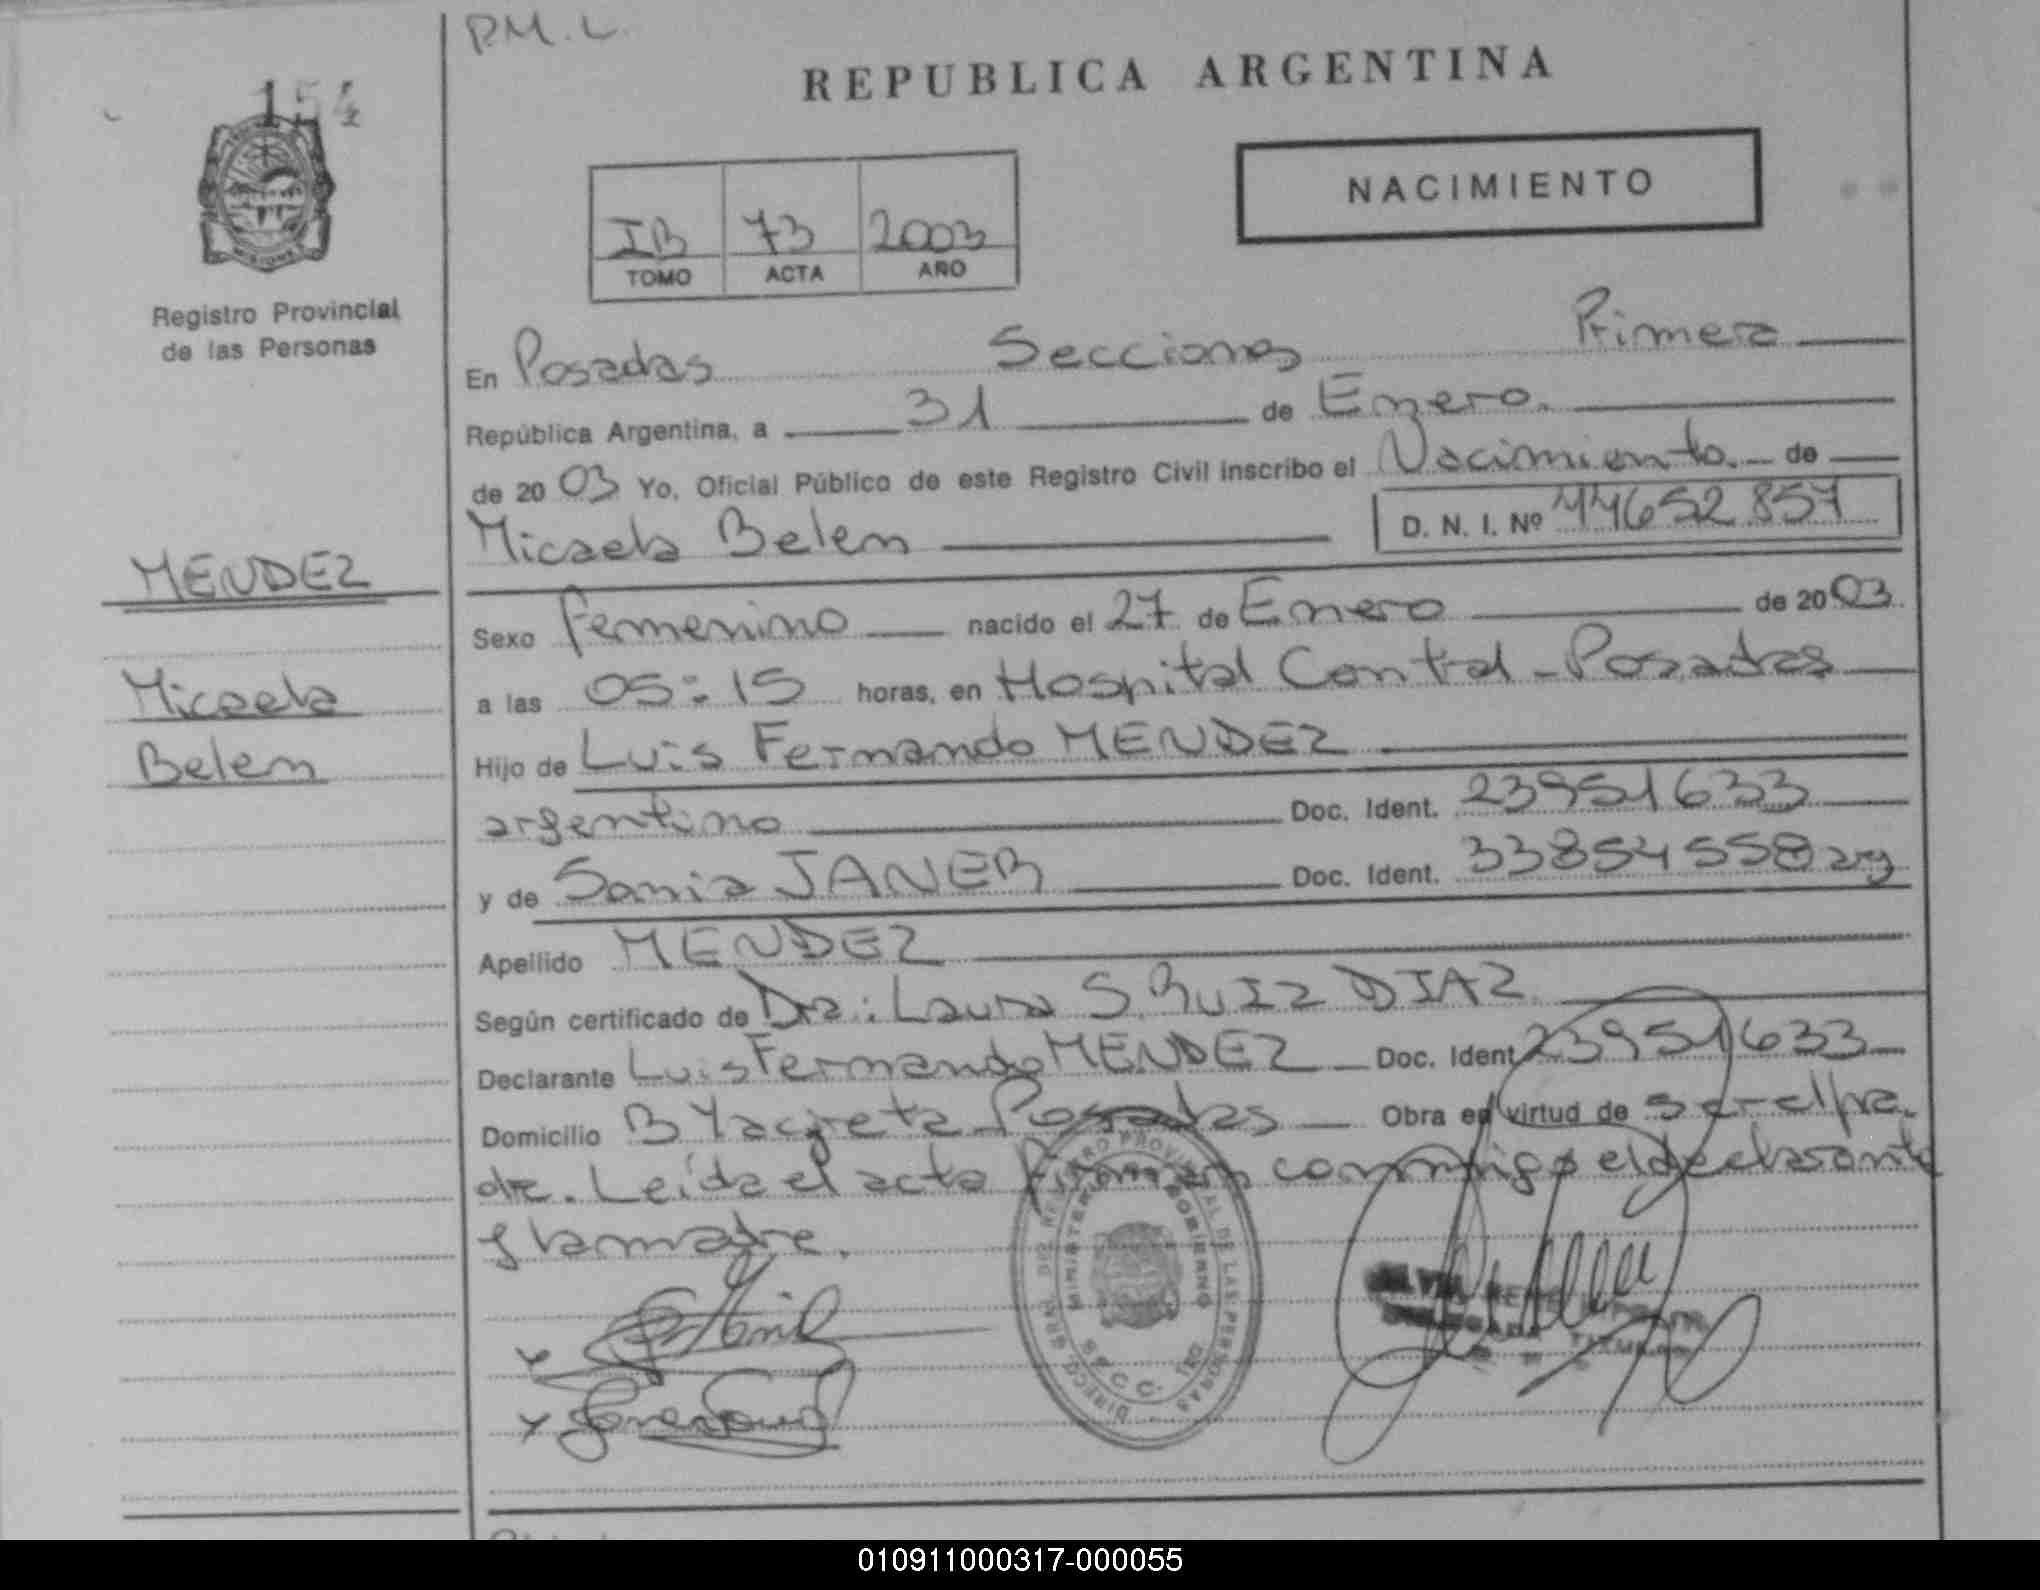 P.M.L.
154
REPUBLICA ARGENTINA
NACIMIENTO
IB 73 2003
TOMO ACTA AÑO
Registro Provincial
de las Personas
MENDEZ
Micaela
Belen
En Posadas Secciones Primera
República Argentina, a 31 de Enero.
de 2003 Yo, Oficial Público de este Registro Civil inscribo el Nacimiento. de
Micaela Belen D. N. I. Nº 44652857
Sexo femenino nacido el 27 de Enero de 2003.
a las 05:15 horas, en Hospital Central - Posadas
Hijo de Luis Fernando MENDEZ
argentino Doc. Ident. 23951633
y de Sonia JANER Doc. Ident. 33854558 arg
Apellido MENDEZ
Según certificado de Dra: Laura S. RUIZ DIAZ
Declarante Luis Fernando MENDEZ Doc. Ident 23951633
Domicilio B Yacyreta Posadas Obra en virtud de ser el pa.
dre. Leída el acta firman conmigo el declarante
y la madre.
DIRECC. GRAL. DEL REGISTRO PROVINCIAL DE LAS PERSONAS
MINISTERIO GOBIERNO
SECC. 1RO
010911000317-000055